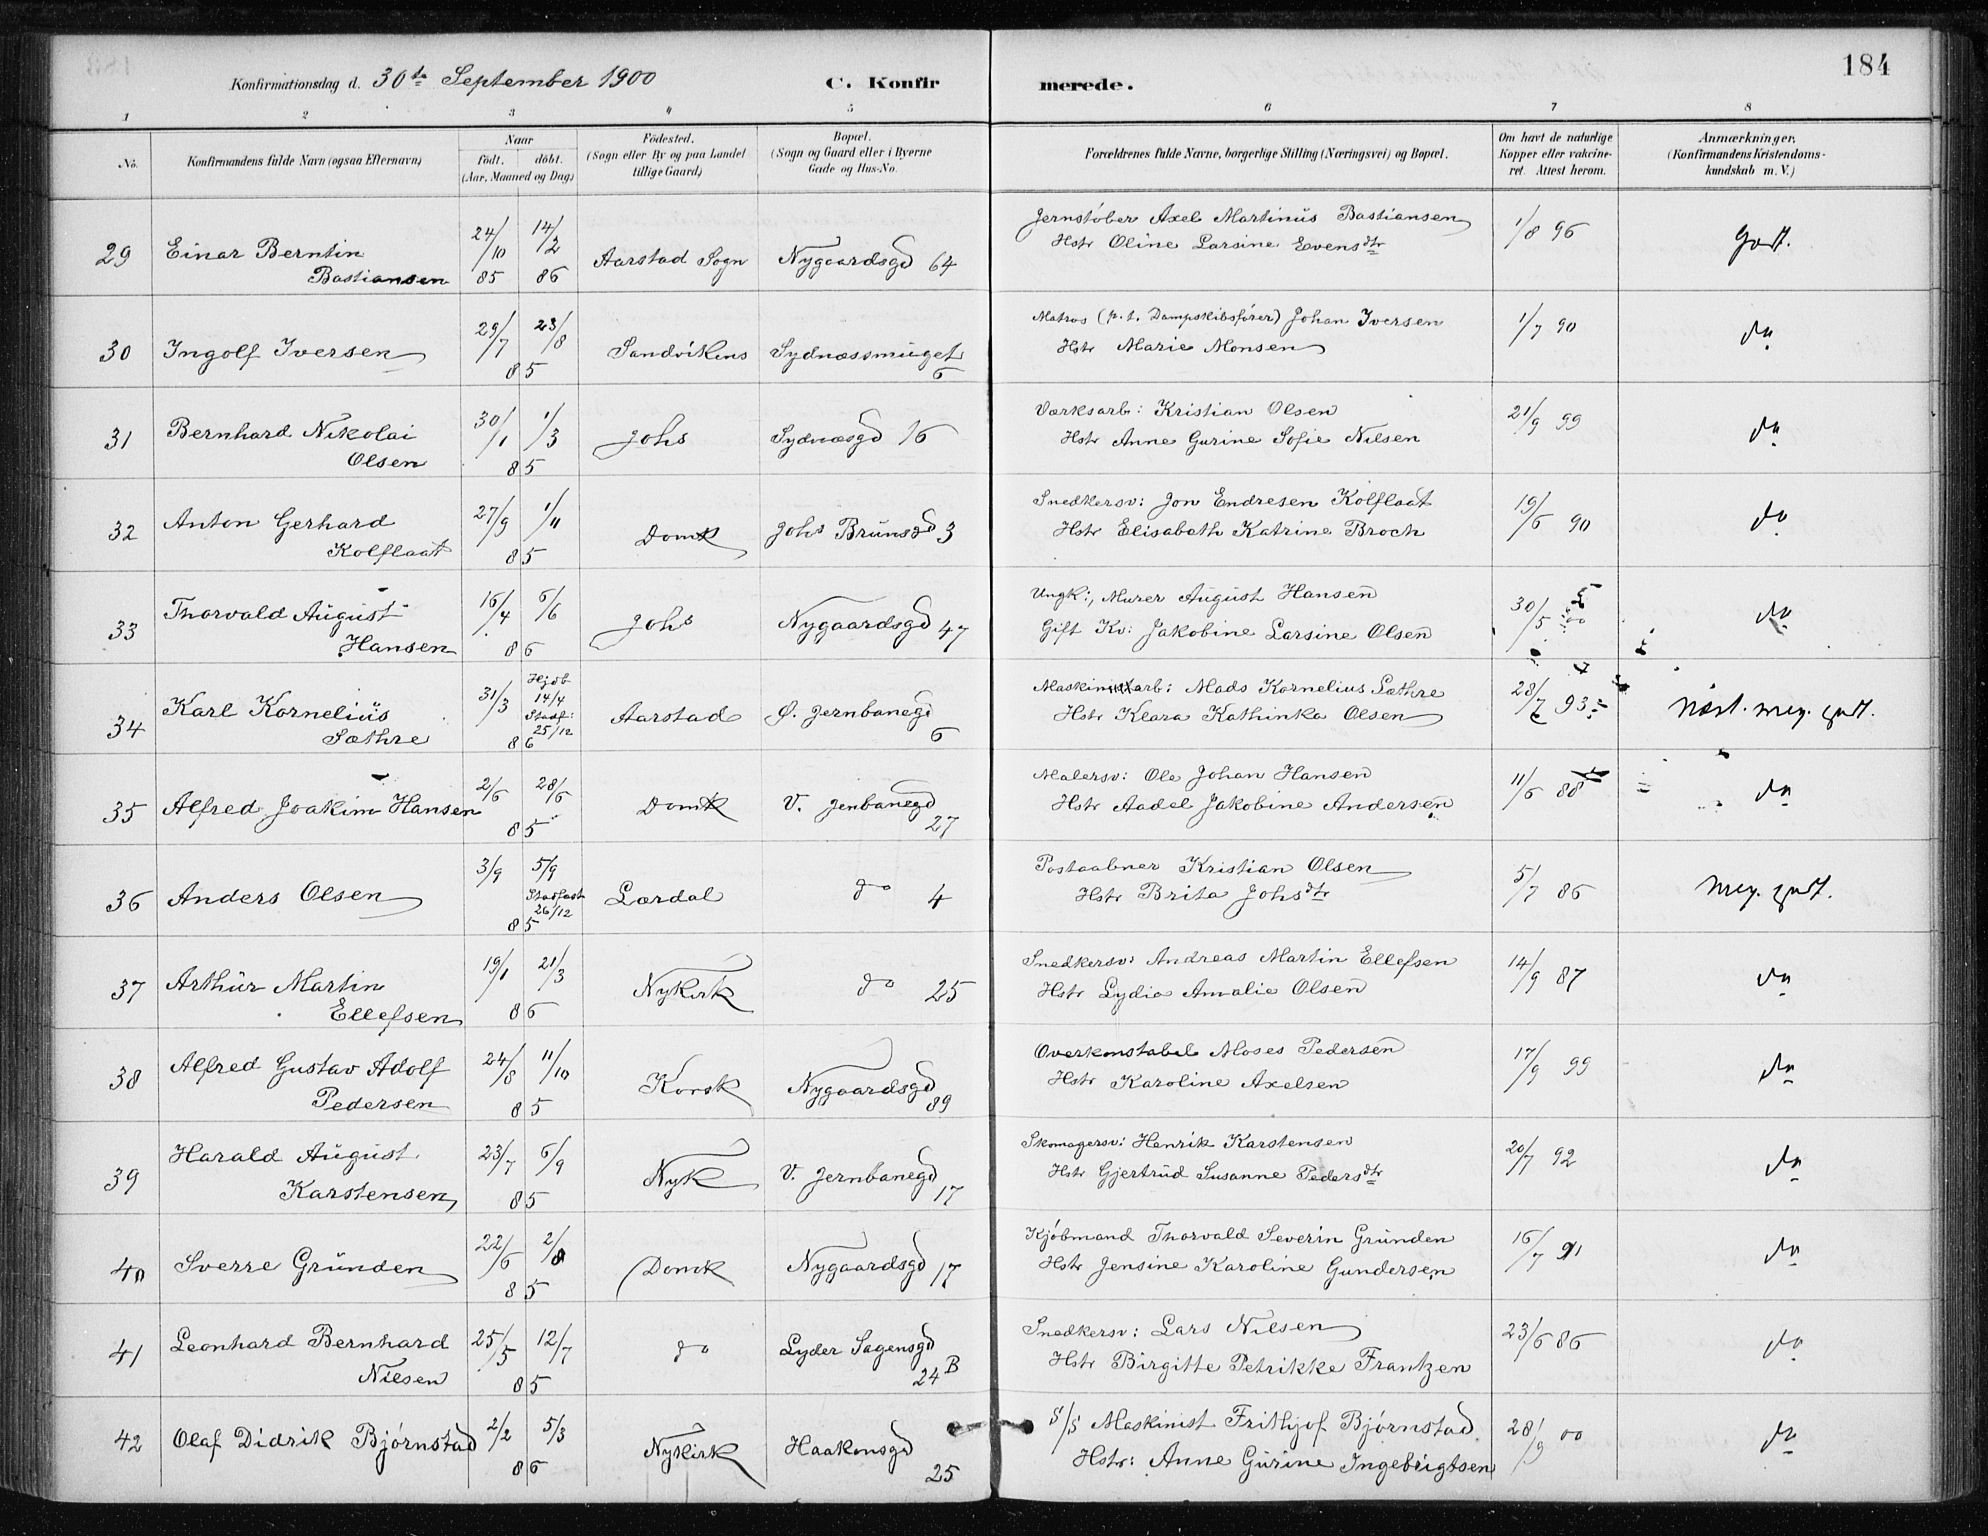 184
Konfirmationsdag d. 30te September 1900
C. Konfir
merede.
1 2 3 4 5 6 7 8
No. Konfirmandens fulde Navn (ogsaa Efternavn)
Naar
födt. döbt.
(Aar, Maaned og Dag)
Födested.
(Sogn eller By og paa Landet
tillige Gaard)
Bopæl.
(Sogn og Gaard eller i Byerne
Gade og Hus-No.
Forældrenes fulde Navne, borgerlige Stilling (Næringsvei) og Bopæl.
Om havt de naturlige
Kopper eller vakcine-
ret. Attest herom.
Anmærkninger.
(Konfirmandens Kristendoms-
kundskab m. V.)
29 Einar Berntin
Bastiansen
24/10 85 14/2 86
Aarstad Sogn
Nygaardsgd 64
Jernstøber Axel Martinus Bastiansen
Hstr Oline Larsine Evensdtr
1/8 96
Godt.
30 Ingolf Iversen
29/7 23/8
85
Sandvikens
Sydnæssmuget
6
Matros (p.t. Dampskibsfører) Johan Iversen
Hstr Marie Monsen
1/7 90
do
31 Bernhard Nikolai
Olsen
30/1 1/3
85
Johs
Sydnæsgd 16
Værksarb: Kristian Olsen
Hstr Anne Gurine Sofie Nilsen
21/9 99
do
32 Anton Gerhard
Kolflaat
27/9 1/11
85
Domk
Johs Brunsgd 3
Snedkersv: Jon Endresen Kolflaat
Hstr Elisabeth Katrine Broch
19/6 90
do
33 Thorvald August
Hansen
16/4 6/6
86
Johs
Nygaardsgd 47
Ungk:, Murer August Hansen
Gift Kv: Jakobine Larsine Olsen
30/5 00
do
34 Karl Kornelius
Sæthre
31/3 Hjdb
14/4
Stadf:
25/12
86
Aarstad
Ø. Jernbanegd
6
Maskinarb: Mads Kornelius Sæthre
Hstr Klara Kathinka Olsen
28/7 93
Næst. meg. godt.
35 Alfred Joakim Hansen
2/6 28/6
85
Domk
V. Jenbanegd
27
Malersv: Ole Johan Hansen
Hstr Aadel Jakobine Andersen
11/6 88
do
36 Anders Olsen
3/9 5/9
Stadfast
26/12
85
Lærdal
do 4
Postaabner Kristian Olsen
Hstr Brita Johsdtr
5/7 86
Meg. godt.
37 Arthur Martin
Ellefsen
19/1 21/3
86
Nykirk
do 25
Snedkersv: Andreas Martin Ellefsen
Hstr Lydia Amalie Olsen
14/9 87
do
38 Alfred Gustav Adolf
Pedersen
24/8 11/10
85
Korsk
Nygaardsgd
89
Overkonstabel Moses Pedersen
Hstr Karoline Axelsen
17/9 99
do
39 Harald August
Karstensen
23/7 6/9
85
Nyk
V. Jernbanegd
17
Skomagersv: Henrik Karstensen
Hstr Gjertrud Susanne Pedersdtr
20/7 92
do
40 Sverre Grunden
22/6 2/8
85
Domk
Nygaardsgd 17
Kjøbmand Thorvald Severin Grunden
Hstr Jensine Karoline Gundersen
16/7 91
do
41 Leonhard Bernhard
Nilsen
25/5 12/7
85
do
Lyder Sagensgd
24 B
Snedkersv: Lars Nilsen
Hstr Birgitte Petrikke Frantzen
23/6 86
do
42 Olaf Didrik Bjørnstad
2/2 5/3
86
Nykirk
Haakonsgd
25
S/S Maskinist Frithjof Bjørnstad
Hstr: Anne Gurine Ingebrigtsen
28/9 00
do